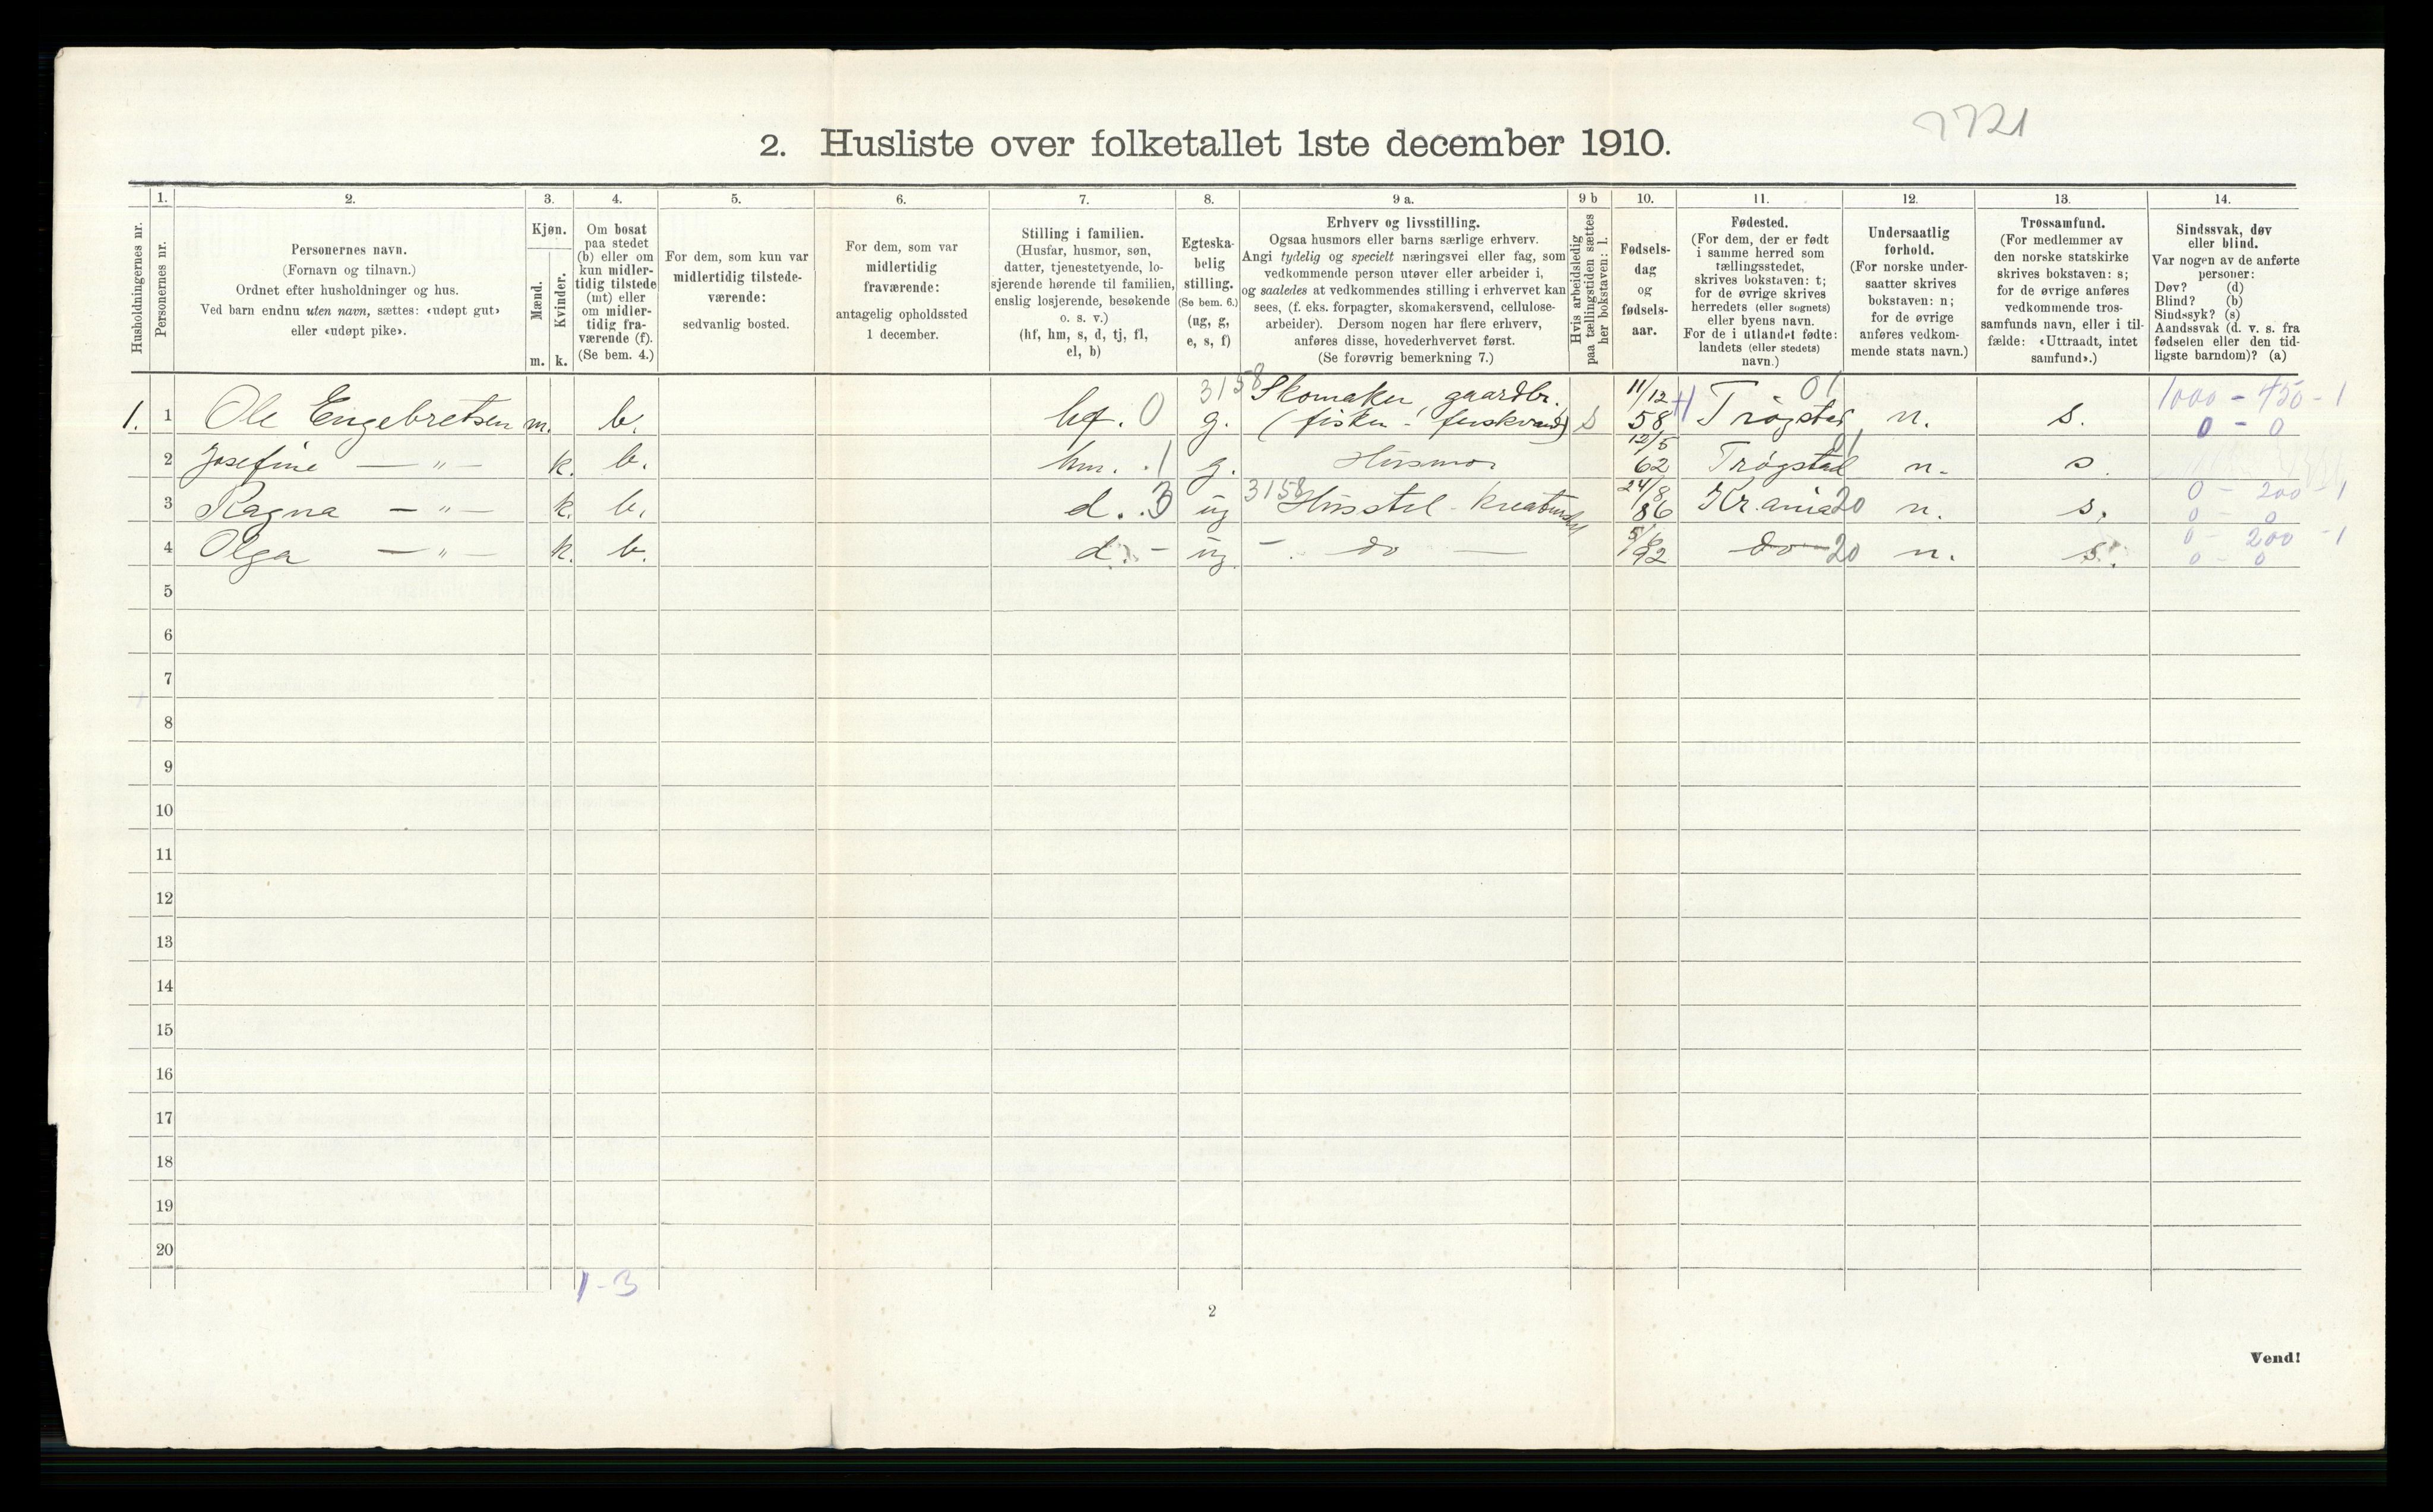 7721
2. Husliste over folketallet 1ste december 1910.
1. 2. 3. 4. 5. 6. 7. 8. 9 a. 9 b 10. 11. 12. 13. 14.
Husholdningernes nr.
Personernes nr.
Personernes navn.
(Fornavn og tilnavn.)
Ordnet efter husholdninger og hus.
Ved barn endnu uten navn, sættes: «udøpt gut»
eller «udøpt pike».
Kjøn.
Mænd.
Kvinder.
m. k.
Om bosat
paa stedet
(b) eller om
kun midler-
tidig tilstede
(mt) eller
om midler-
tidig fra-
værende (f).
(Se bem. 4.)
For dem, som kun var
midlertidig tilstede-
værende:
sedvanlig bosted.
For dem, som var
midlertidig
fraværende:
antagelig opholdssted
1 december.
Stilling i familien.
(Husfar, husmor, søn,
datter, tjenestetyende, lo-
sjerende hørende til familien,
enslig losjerende, besøkende
o. s. v.)
(hf, hm, s, d, tj, fl,
el, b)
Egteska-
belig
stilling.
(Se bem. 6.)
(ug, g,
e, s, f)
Erhverv og livsstilling.
Ogsaa husmors eller barns særlige erhverv.
Angi tydelig og specielt næringsvei eller fag, som
vedkommende person utøver eller arbeider i,
og saaledes at vedkommendes stilling i erhvervet kan
sees, (f. eks. forpagter, skomakersvend, cellulose-
arbeider). Dersom nogen har flere erhverv,
anføres disse, hovederhvervet først.
(Se forøvrig bemerkning 7.)
Hvis arbeidsledig
paa tællingstiden sættes
her bokstaven: l.
Fødsels-
dag
og
fødsels-
aar.
Fødested.
(For dem, der er født
i samme herred som
tællingsstedet,
skrives bokstaven: t;
for de øvrige skrives
herredets (eller sognets)
eller byens navn.
For de i utlandet fødte:
landets (eller stedets)
navn.)
Undersaatlig
forhold.
(For norske under-
saatter skrives
bokstaven: n;
for de øvrige
anføres vedkom-
mende stats navn.)
Trossamfund.
(For medlemmer av
den norske statskirke
skrives bokstaven: s;
for de øvrige anføres
vedkommende tros-
samfunds navn, eller i til-
fælde: «Uttraadt, intet
samfund».)
Sindssvak, døv
eller blind.
Var nogen av de anførte
personer:
Døv? (d)
Blind? (b)
Sindssyk? (s)
Aandssvak (d. v. s. fra
fødselen eller den tid-
ligste barndom)? (a)
3158 Skomaker, gaardbr. 11/12 01 1000 - 450 - 1
1. 1 Ole Engebretsen m. b. hf. 0 g. (fisker - ferskvand) s 58 Trøgstad n. s. 0 - 0
2 Josefine — " — k. b. hm. 1 g. Husmor 12/5 62 Trøgstad 01 n. s.
3 Ragna — " — k. b. d. 3 ug 3158 Husstel - kreaturstel 24/8 86 Kr.ania 20 n. s. 0 - 200 - 1
0 - 0
4 Olga — " — k. b. d. - ug - do — 5/6 92 do 20 n. s. 0 - 200 - 1
0 - 0
5
6
7
8
9
10
11
12
13
14
15
16
17
18
19
20
1 - 3
2
Vend!